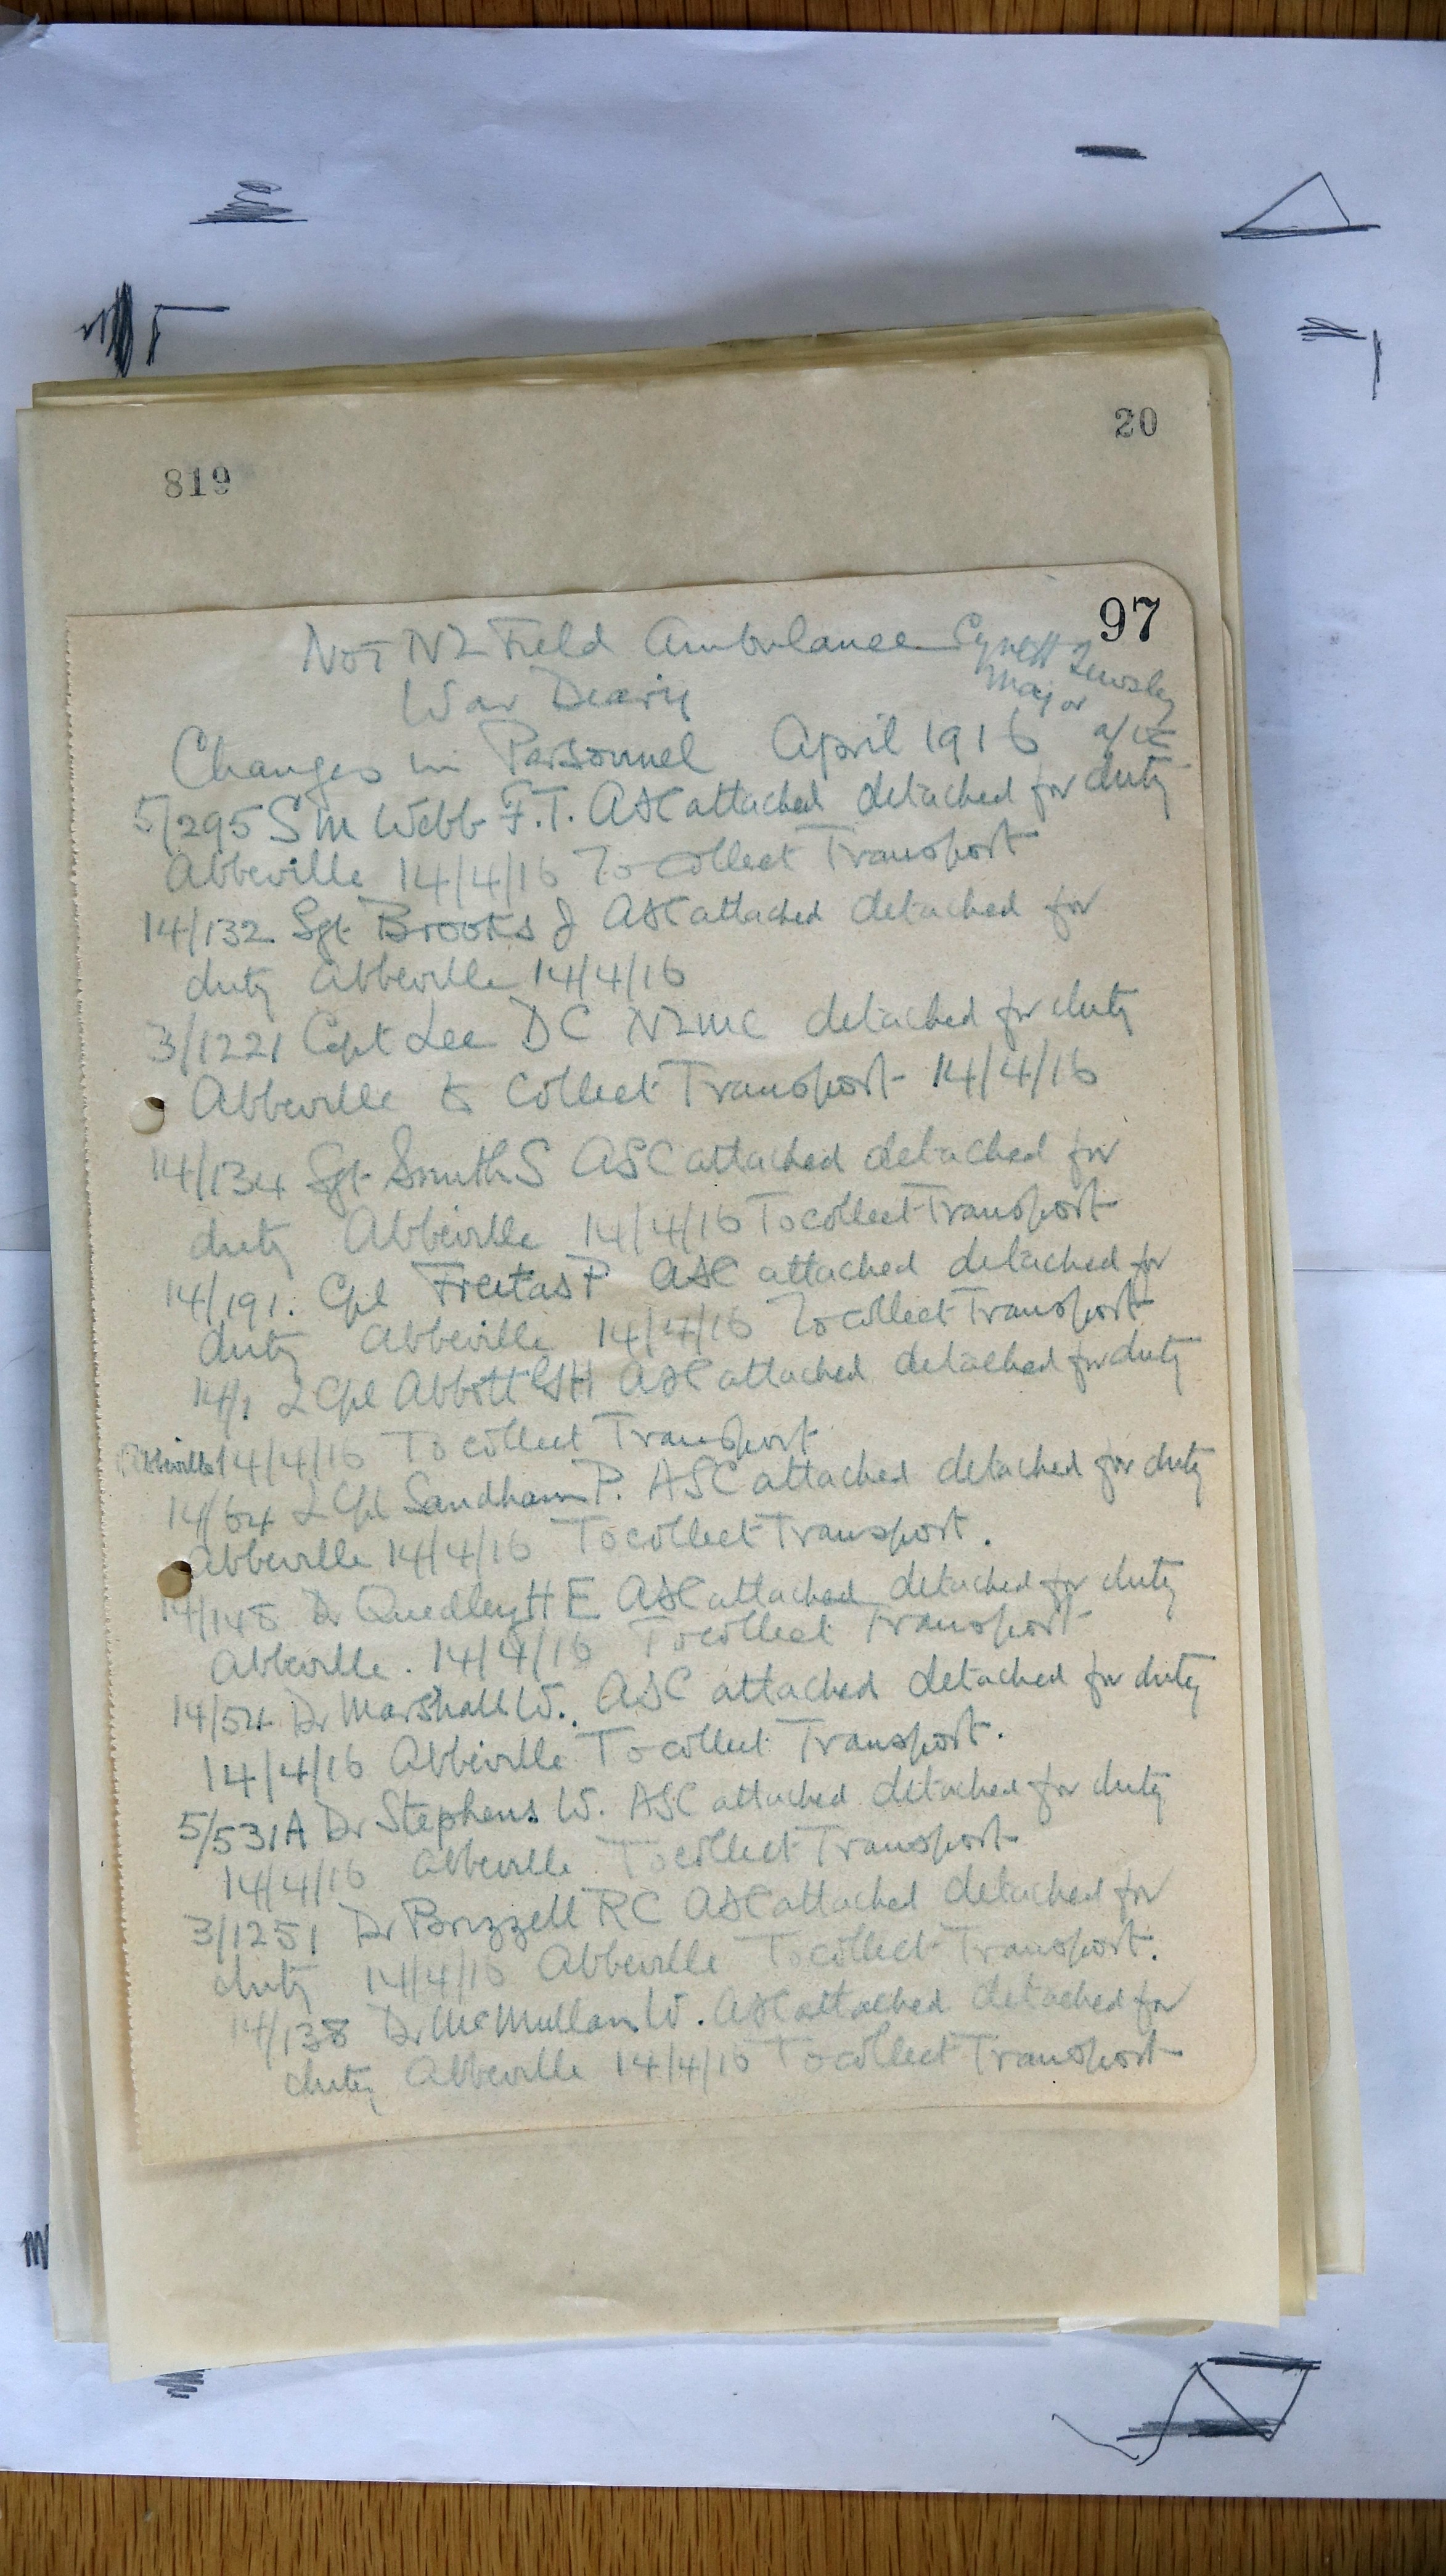 20
819
97
No 1 NZ Field Ambulance
War Diary
Major
Changes in Personnel April 1916 a/c
5/295 S M Webb F.T. ASC attached detached for duty
Abbeville 14/4/16 To collect Transport
14/132 Sgt Brooks J ASC attached detached for
duty Abbeville 14/4/16
3/1221 Cpl Lee D C NZMC detached for duty
Abbeville to collect Transport 14/4/16
14/134 Sgt Smith S ASC attached detached for
duty Abbeville 14/4/16 To collect Transport
14/191. Cpl Freitas P ASC attached detached for
duty Abbeville 14/4/16 To collect Transport
14/1 L Cpl Abbott GH ASC attached detached for duty
Abbeville 14/4/16 To collect Transport
14/64 L Cpl Sandham P. ASC attached detached for duty
Abbeville 14/4/16 To collect Transport.
Dr Quedley H E ASC attached detached for duty
Abbeville. 14/4/16 To collect Transport
14/54 Dr Marshall W. ASC attached detached for duty
14/4/16 Abbeville To collect Transport.
5/531A Dr Stephens W. ASC attached detached for duty
14/4/16 Abbeville To collect Transport
3/1251 Dr Brizzell RC ASC attached detached for
duty 14/4/16 Abbeville To collect Transport.
14/138 Dr McMullan W. ASC attached detached for
duty Abbeville 14/4/16 To collect Transport